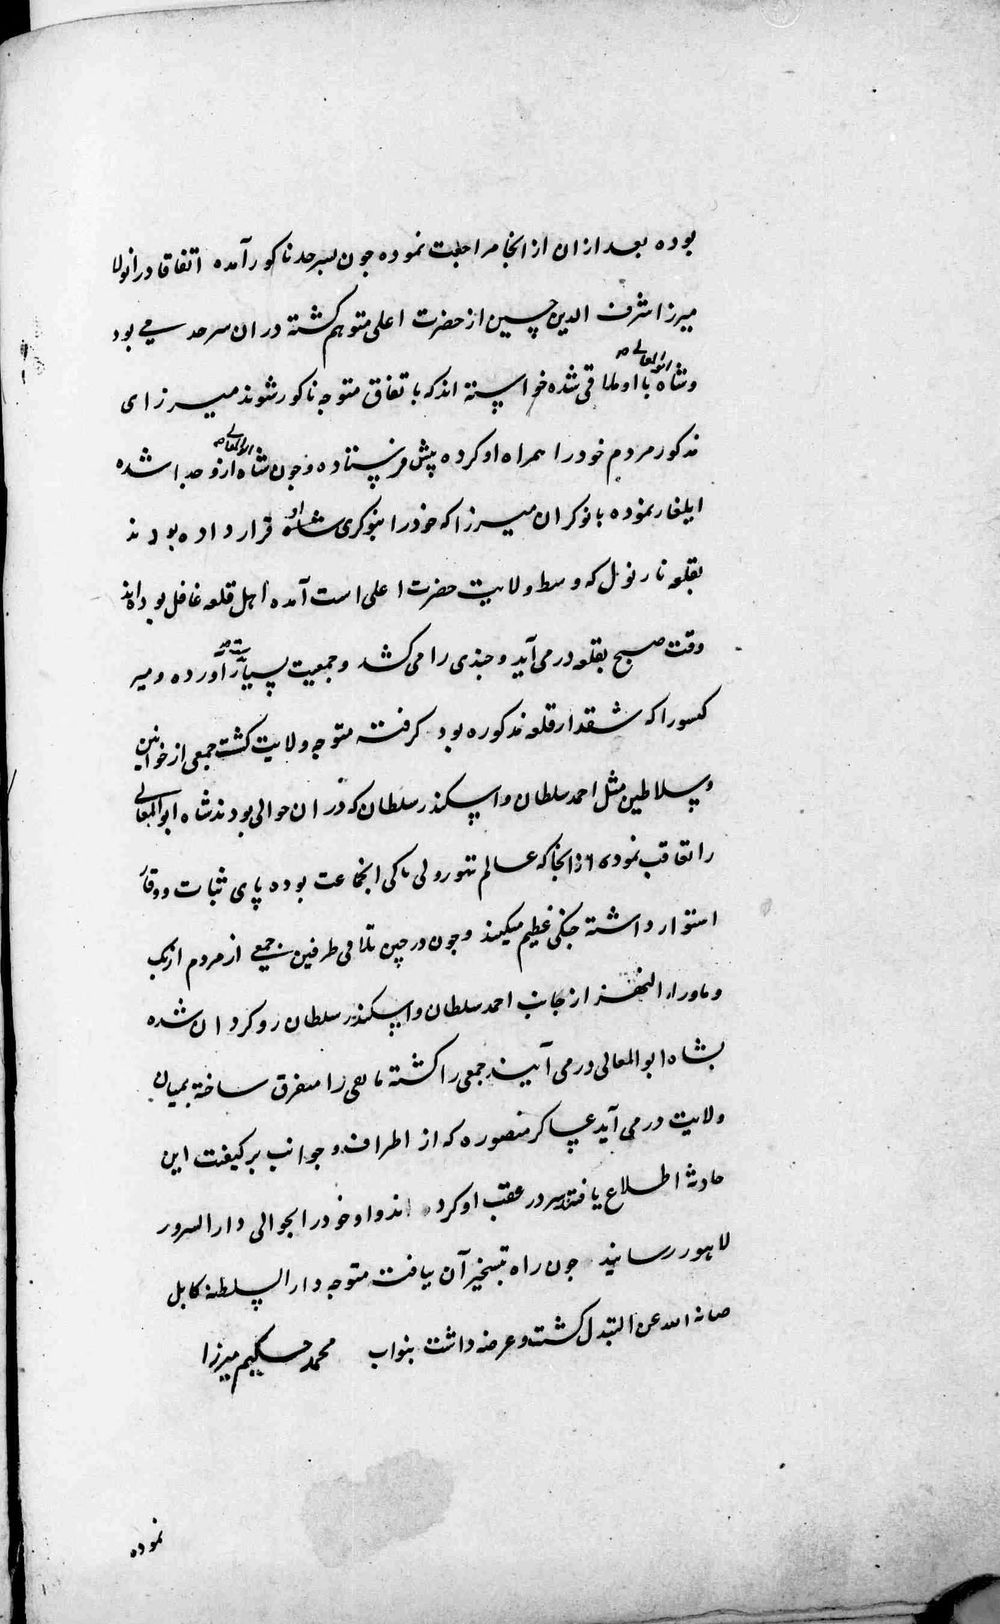 بوده بعد ازان از انجا مراجعت نموده جون بسرحد ناکور آمده اتفاقا درانولا
میرزا شرف الدین حسین از حضرت اعلی متوهم کشته دران سرحد می بود
وشاه ابوالمعالی با او ملاقی شده خواسته اند که باتفاق متوجه ناکور شوند میرزای
مذکور مردم خود را همراه او کرده پیش فرستاده وجون شاه ابوالمعالی ازو جدا شده
ایلغار نموده با نوکران میرزا که خود را بنوکری شاه قرار داده بودند
بقلعه نارنول که وسط ولایت حضرت اعلی است آمده اهل قلعه غافل بوده اند
وقت صبح بقلعه درمی آید و جندی را می کشد و جمعیت بسیار آورده ومیر
کیسو را که شقدار قلعه مذکوره بود کرفته متوجه ولایت کشت جمعی از خوانین
وسلاطین مثل احمد سلطان واسکندر سلطان که دران حوالی بودند شاه ابوالمعالی
را تعاقب نموده از انجا که عالم تهور ولی باکی انجماعت بوده پای ثبات ووقار
استوار داشته جنکی عظیم میکنند وجون درحین تلاقی طرفین جمعی از مردم ازبک
وماوراء النهر از جانب احمد سلطان واسکندر سلطان روکردان شده
بشاه ابوالمعالی درمی آیند جمعی را کشته مابقی را متفرق ساخته بمیان
ولایت درمی آید عساکر منصوره که از اطراف و جوانب برکیفیت این
حادثه اطلاع یافته سر در عقب او کرده اند واو خود را بحوالی دارالسرور
لاهور رسانید جون راه تسخیر آن نیافت متوجه دارالسلطنه کابل
صانه الله عن التبدل کشت وعرضه داشت بنواب محمد حکیم میرزا
نموده